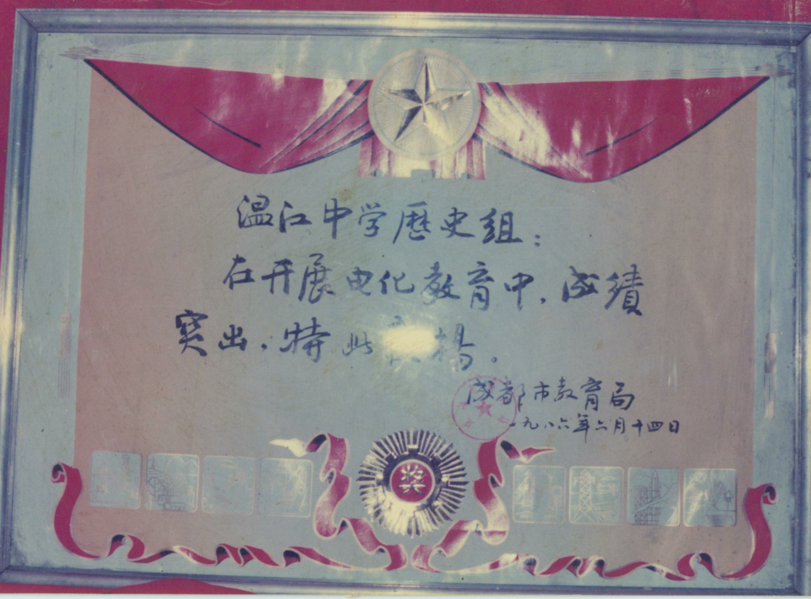 温江中学歷史组：
在开展电化教育中，成績
突出，特此 扬。
成都市教育局
一九八六年六月十四日
奖